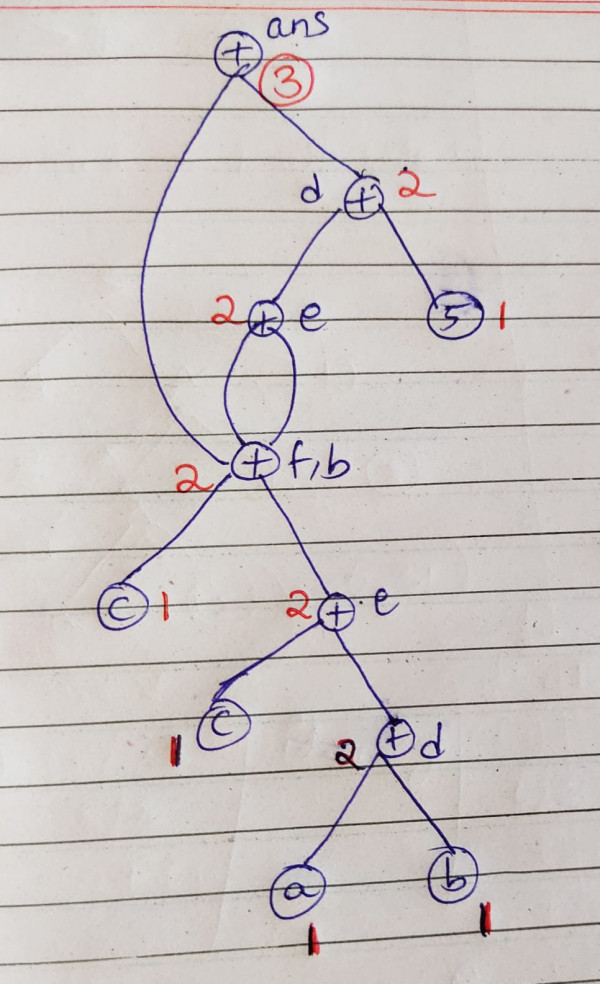 ans
+
3
d + 2
2 + e
5 1
2 + f,b
c 1
2 + e
1 c
2 + d
a
b
1
1